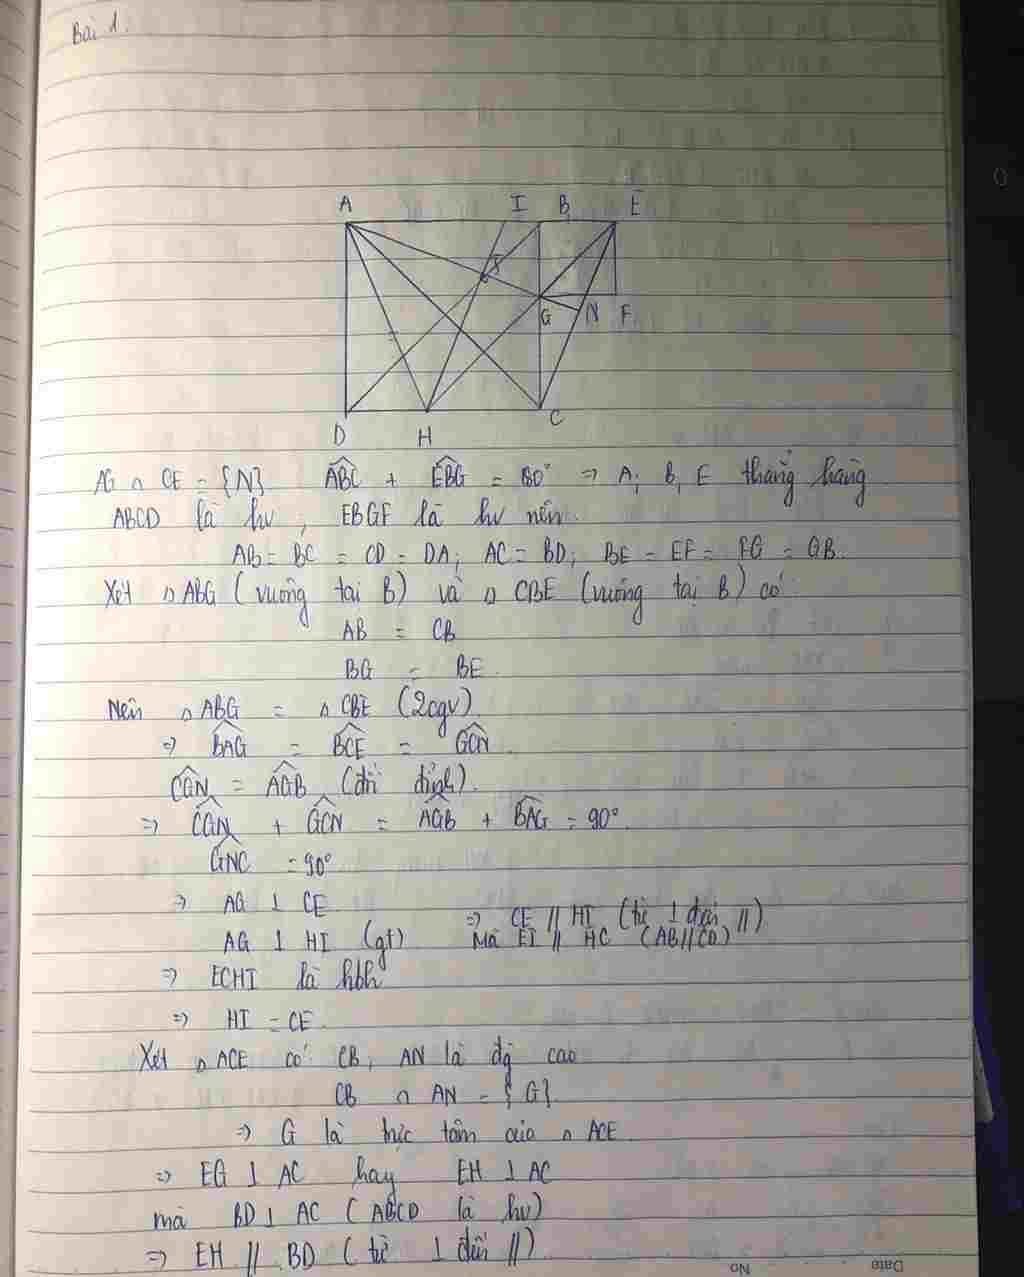 Bài 1.
A I B E
G N F
D H C
AG ∩ CE = {N} ABC + EBG = 180° => A, B, E thẳng hàng
ABCD là hv, EBGF là hv nên.
AB = BC = CD = DA; AC = BD; BE = EF = FG = GB.
Xét △ABG (vuông tại B) và △CBE (vuông tại B) có
AB = CB
BG = BE.
Nên △ABG = △CBE (2cgv)
=> BAG = BCE = GCN.
CGN = AGB (đối đỉnh).
=> CGN + GCN = AGB + BAG = 90°.
GNC = 90°
=> AG ⊥ CE => CE // HI (từ ⊥ đến //)
AG ⊥ HI (gt) Mà EI // HC (AB//CD)
=> ECHI là hbh
=> HI = CE.
Xét △ACE có CB, AN là đg cao
CB ∩ AN = {G}
=> G là trực tâm của △ACE.
=> EG ⊥ AC hay EH ⊥ AC
mà BD ⊥ AC (ABCD là hv)
=> EH // BD (từ ⊥ đến //)
No Date